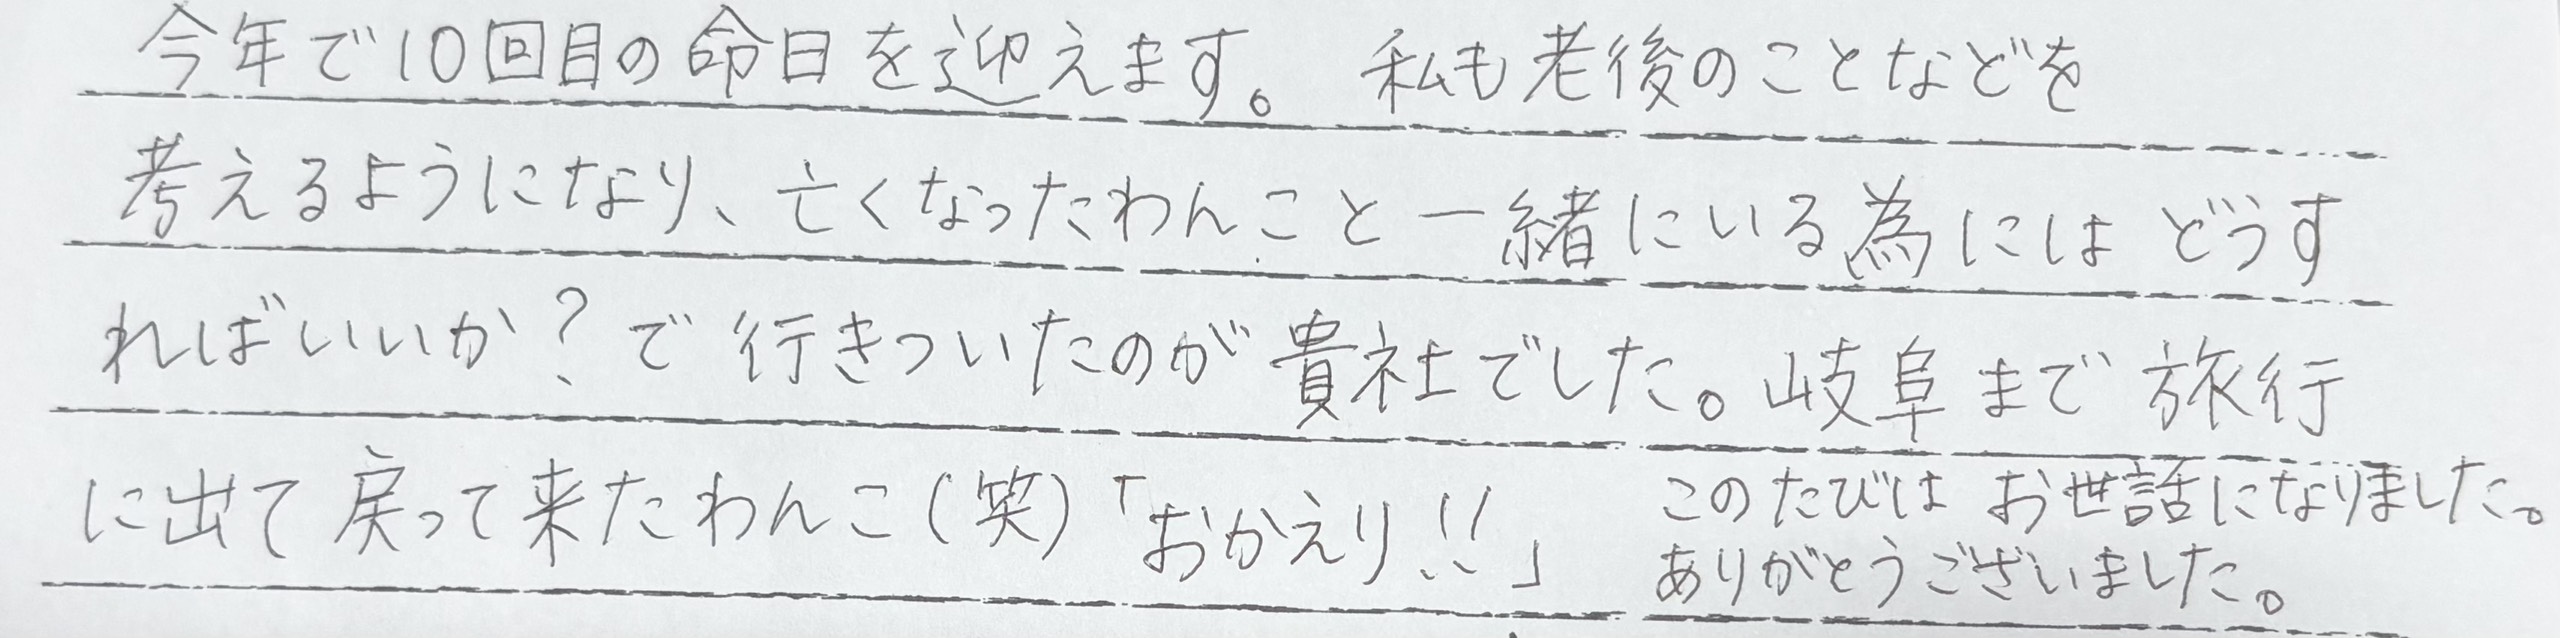 今年で10回目の命日を迎えます。 私も老後のことなどを
考えるようになり、亡くなったわんこと一緒にいる為にはどうす
ればいいか?で行きついたのが貴社でした。岐阜まで旅行
に出て戻って来たわんこ(笑)「おかえり!!」
このたびはお世話になりました。
ありがとうございました。